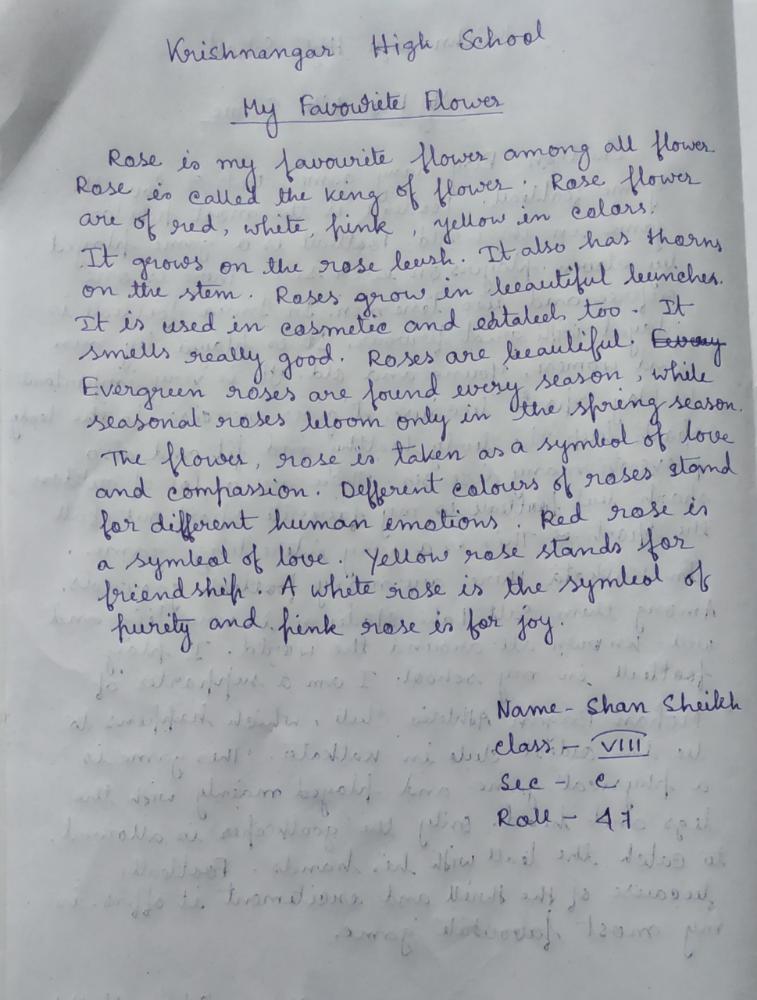 Krishnangar High School
My Favouriete Flower
Rose is my favourite flower among all flower.
Rose is called the king of flower. Rose flower
are of red, white, pink, yellow in colors.
It grows on the rose bush. It also has thorns
on the stem. Roses grow in beautiful bunches.
It is used in cosmetic and too. It
smells really good. Roses are beautiful. Every
Evergreen roses are found every season, while
seasonal roses bloom only in the spring season.
The flower, rose is taken as a symbol of love
and compassion. Defferent colours of roses stand
for different human emotions. Red rose is
a symbol of love. Yellow rose stands for
friendship. A white rose is the symbol of
purity and pink rose is for joy.
Name - Shan Sheikh
Class - VIII
Sec - C
Roll - 47